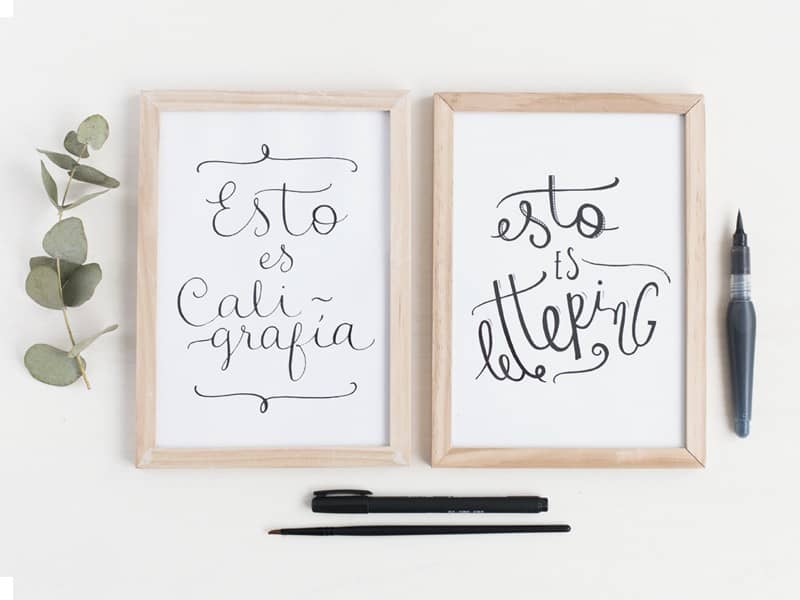 Esto
es
Cali~
~grafía
esto
es
letterinG